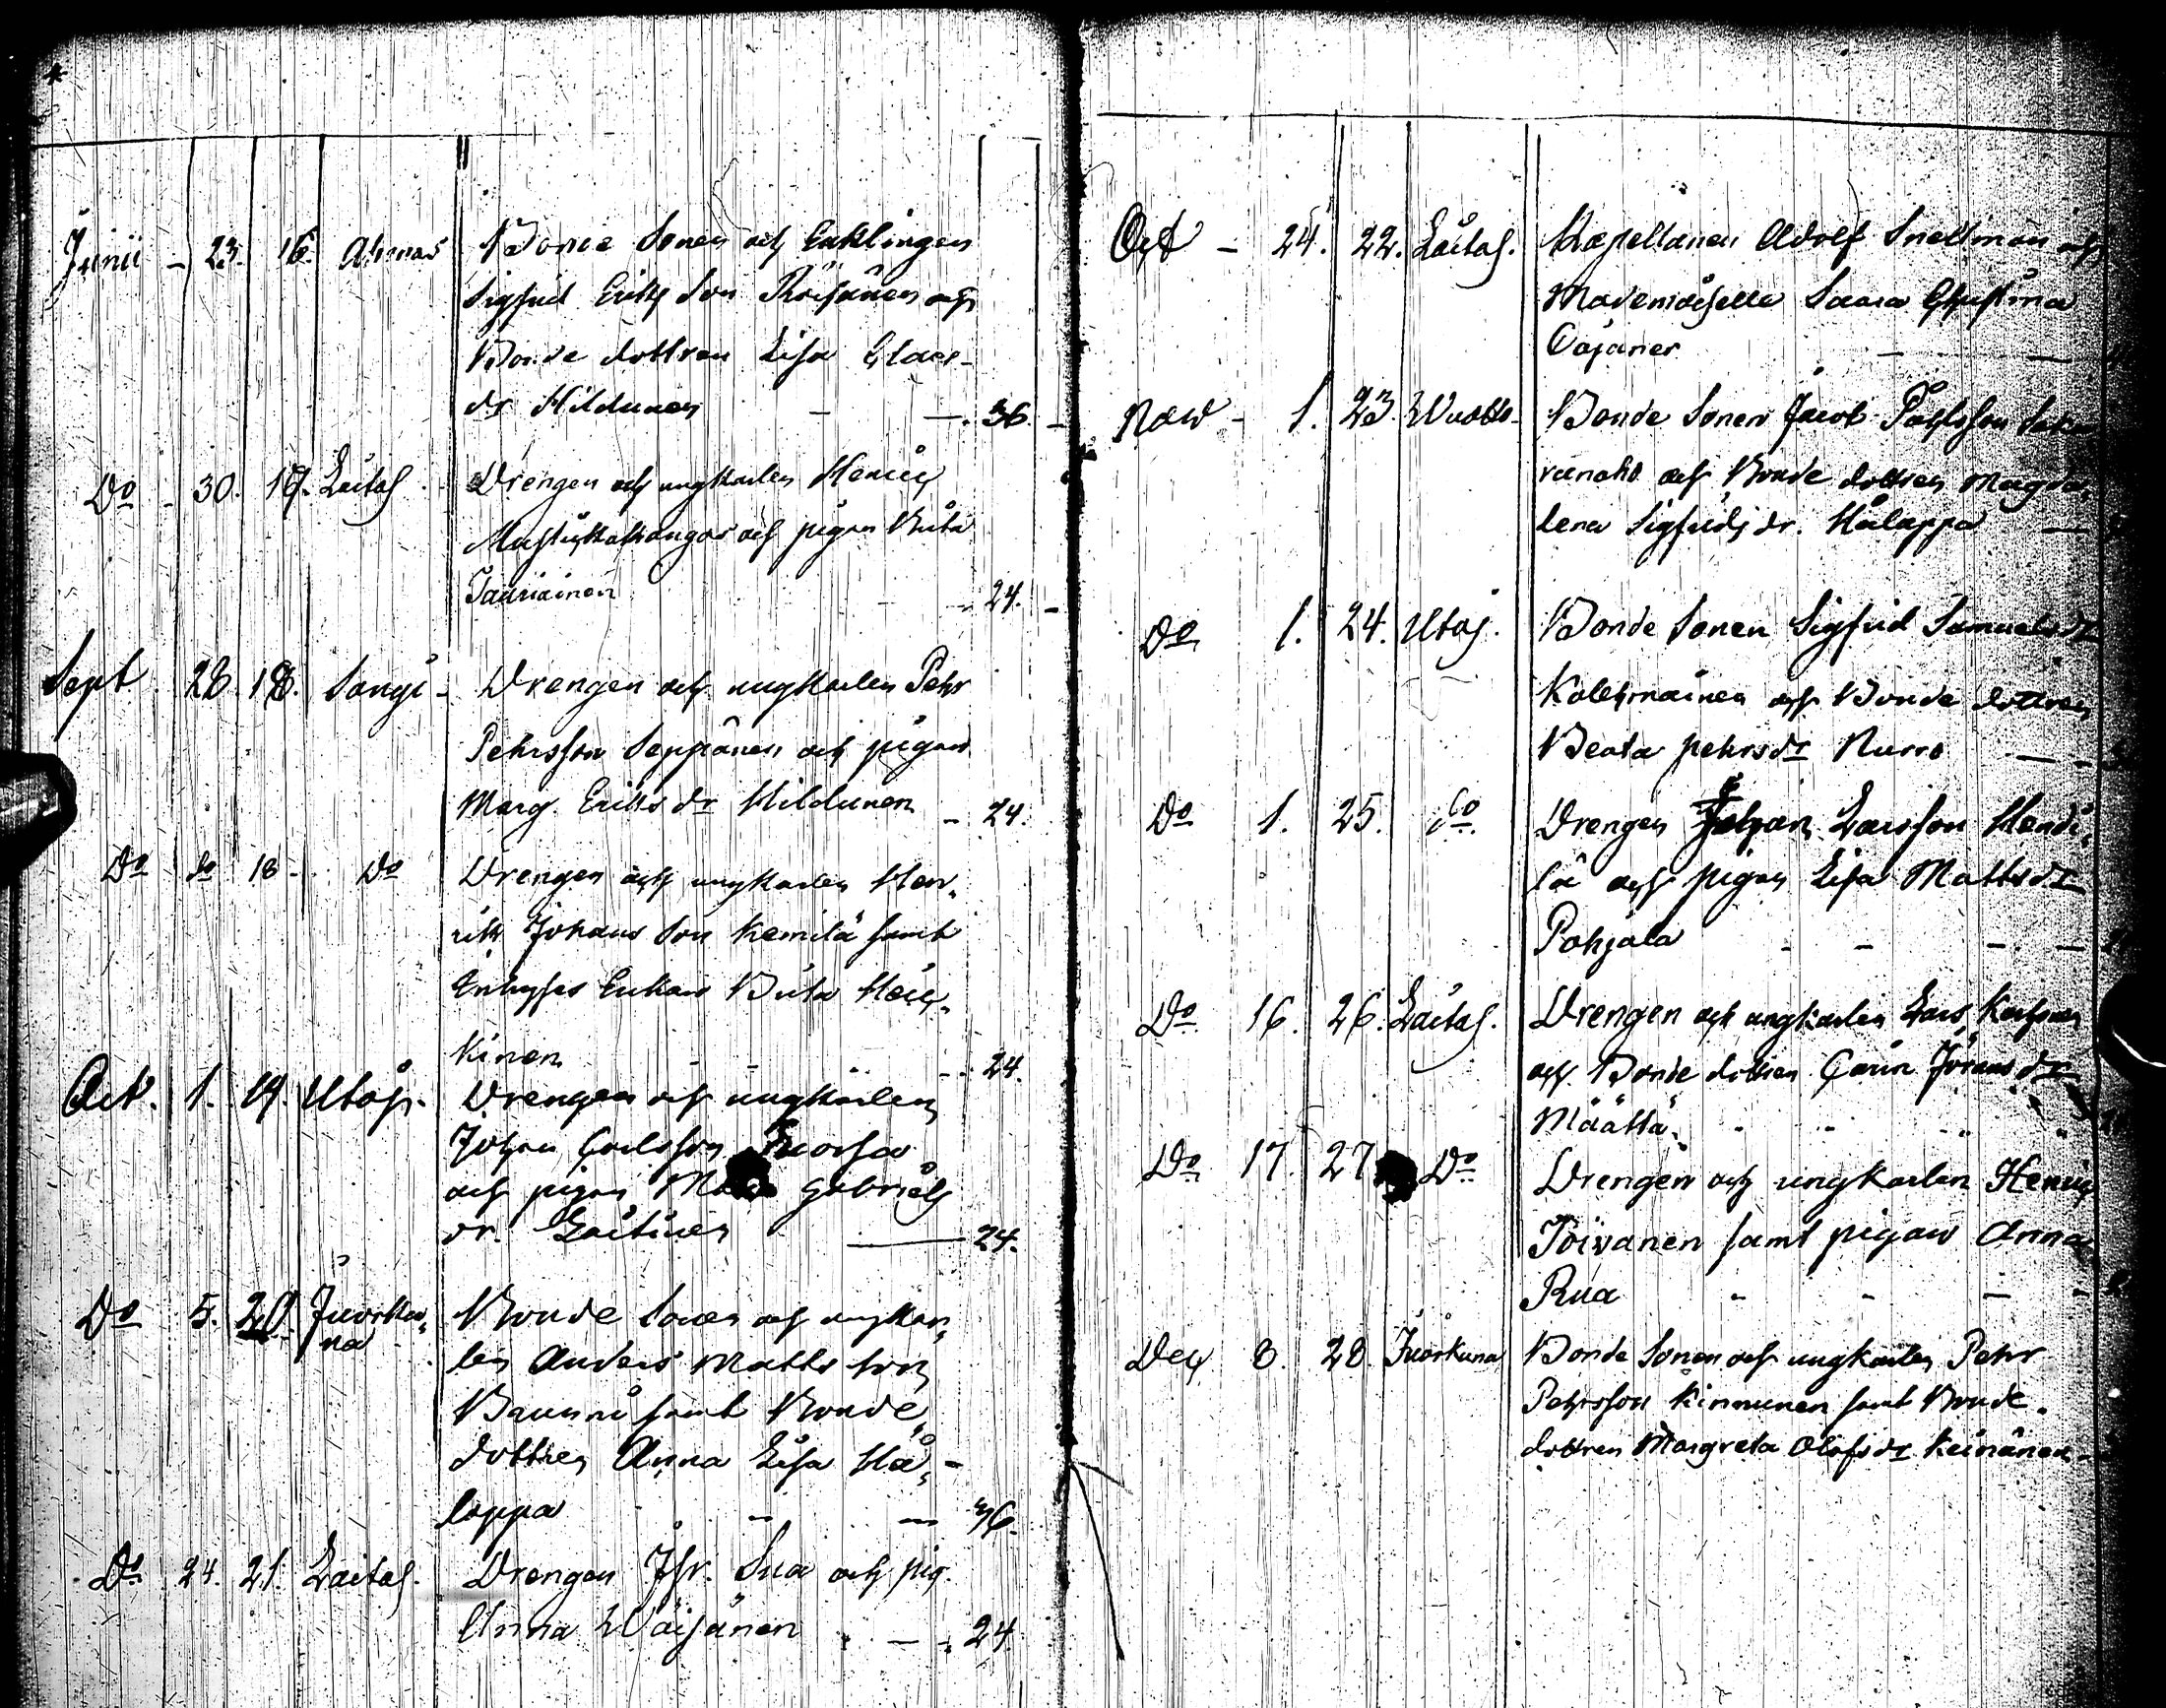 Junii - 23. 16. Ahmas Bonde Sonen och Enklingen
Sigfrid Erichson Räisänen och
Bonde dottren Lisa Claes-
dr Hildunen - - 36.
Do - 30. 17. Laitas. Drengen och ungkarlen Henric
och pigan Brita
Tauriainen 24.
Sept. 28. 18. Sangi- Drengen och ungkarlen Pehr
Pehrsson Seppänen och pigan
Marg. Eriks dr Hildunen - 24.
Do do 18 - Do Drengen och ungkarlen Hen-
rik Johans Son Kemilä samt
Inhyses Enkan Brita Heic-
kinen - - 24.
Oct. 1. 19. Utaj. Drengen och ungkarlen
Johan Carlsson
och pigan Gabriels
dr. Laitinen 24.
Do 5. 20. Juorku-
na Bonde Sonen och ungkar-
len Anders Matts son
Brunni samt Bonde
dottren Anna Lisa Hå-
lappa - - 36.
Do 24. 21. Laitas. Drengen Joh. Sua och pig.
Anna Wäisänen - - 24
Oct - 24. 22. Laitas. Kapellanen Adolf Snellman och
Mademoiselle Saara Christina
Cajaner - -
Nov - 1. 23. Wuotto- Bonde Sonen Jacob Påhlsson
och Bonde dottren Magda-
lena Sigfrids dr. Hålappa -
Do 1. 24. Utaj. Bonde Sonen Sigfrid Samuels
Kolehmainen och Bonde dottren
Beata Pehrsdr Nurro - -
Do 1. 25. do. Drengen Johan Larsson Hendi-
lä och pigan Lisa Mattsdr
Pohjola - - - -
Do 16. 26. Laitas. Drengen och ungkarlen Lars
och Bonde dottren Carin Jörans dr
Määttä - - - -
Do 17. 27 Do Drengen och ungkarlen Henric
Toivanen samt pigan Anna
Rua - - - -
Dec 8. 28. Juorkuna Bonde Sonen och ungkarlen Pehr
Pehrsson Kinnunen samt Bonde-
dottren Margreta Olofsdr Keinänen -